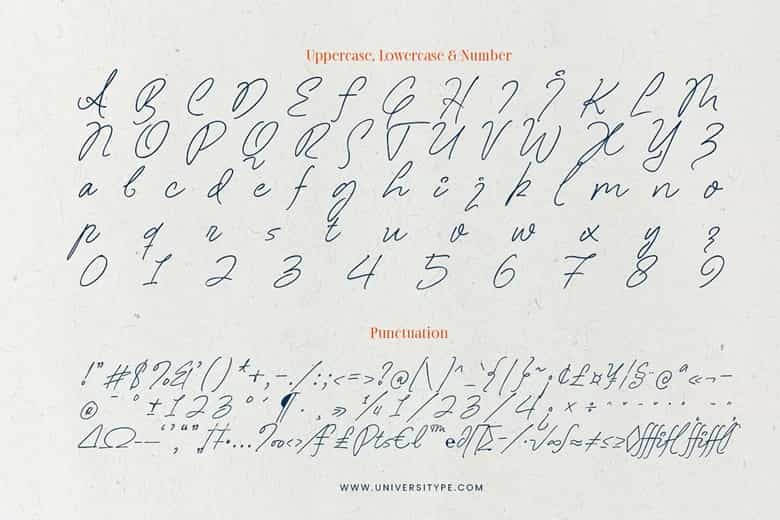 Uppercase, Lowercase & Number
A B C D E F G H I J K L M
N O P Q R S T U V W X Y Z
a b c d e f g h i j k l m n o
p q r s t u v w x y z
0 1 2 3 4 5 6 7 8 9
Punctuation
!"#$%&'()*+,-./:;<=>?@[\]^_`{|}~¡¢£¤¥¦§¨©ª«¬-
®¯°±123´µ¶·¸»¼1/23/4¿×÷
ΔΩ–—‘’‚“”„†•…‰‹›/₣₤₧€ℓ™℮∂∏∑−/∙√∞∫≈≠≤≥◊
WWW.UNIVERSITYPE.COM